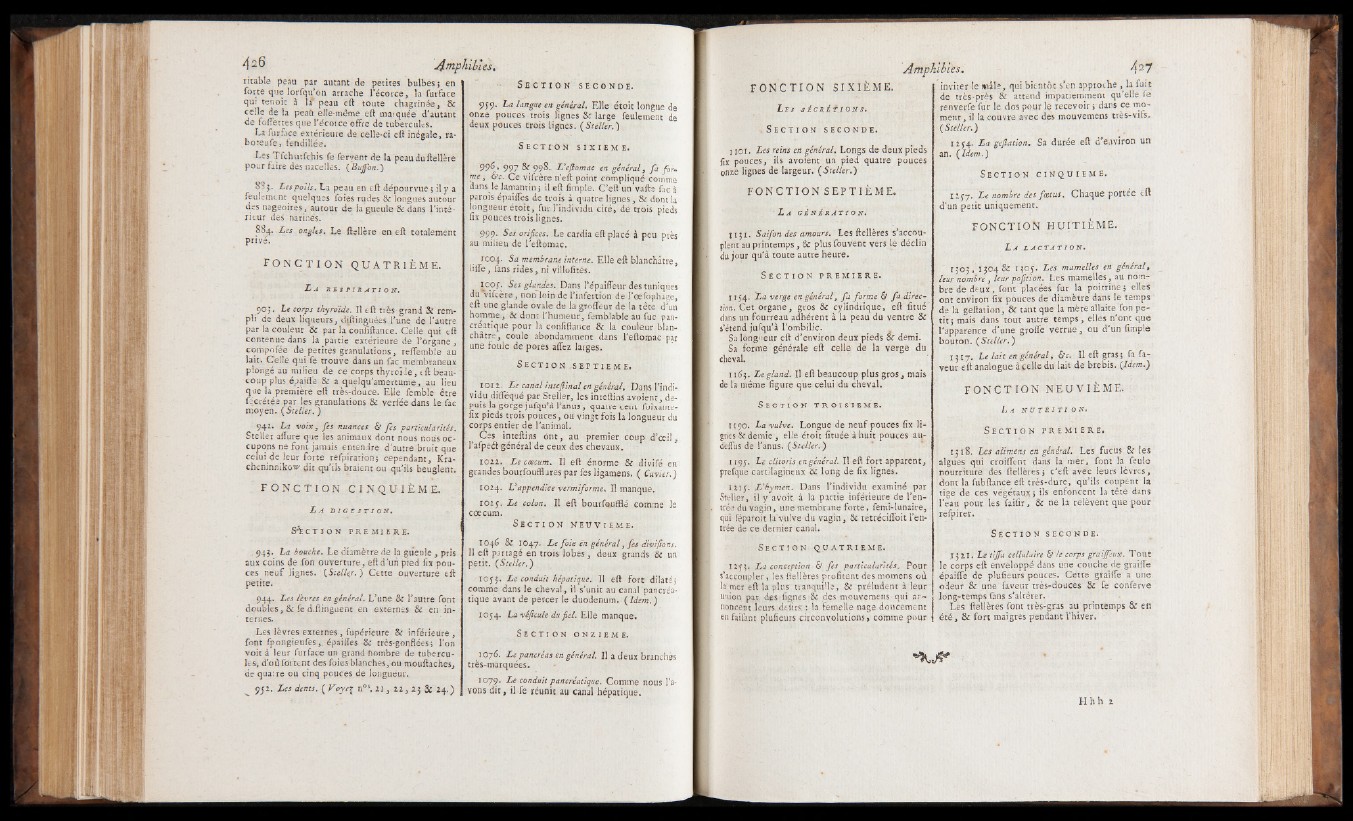 426
Amphibies.
ritable peau par autant de petites bulbes; en
sorte que lorsqu'on arrache l'écorce, la surface
qui tenoit à la peau est toute chagrinée, &
celle de la peau elle-même est marquée d'autant
de fossettes que l'écorce offre de tubercules.
La surface extérieure de celle-ci est inégale, ra-
boteuse, fendillée.
Les Tschutschis se servent de la peau du stellère
pour faire des nacelles. (Buffon.)
883. Les poils. La peau en est dépourvue; il y a
seulement quelques soies rudes & longues autour
des nageoires, autour de la gueule & dans l'inté-
rieur des narines.
884. Les ongles. Le stellère en est totalement
privé.
FONCTION QUATRIÈME.
LA RESPIRATION.
903. Le corps thyroïde. Il est très grand & rem-
pli de deux liqueurs, distinguées l'une de l'autre
par la couleur & par la consistance. Celle qui est
contenue dans la partie extérieure de l'organe,
composée de petites granulations, ressemble au
lait. Celle qui se trouve dans un sac membraneux
plongé au milieu de ce corps thyroïde, est beau-
coup plus épaisse & a quelqu'amertume, au lieu
que la première est très-douce. Elle semble être
sécrétée par les granulations & versée dans le sac
moyen. (Steller.)
942. La voix, ses nuances & ses particularités.
Steller assure que les animaux dont nous nous oc-
cupons ne font jamais entendre d'autre bruit que
celui de leur forte respiration; cependant, Kra-
cheninnikow dit qu'ils braient ou qu'ils beuglent.
FONCTION CINQUIÈME.
LA DIGESTION.
SECTION PREMIERE.
943. La bouche. Le diamètre de la gueule, pris
aux coins de son ouverture, est d'un pied six pou-
ces neuf lignes. (Steller.) Cette ouverture est
petite.
944. Les lèvres en général. L'une & l'autre sont
doubles, & se distinguent en externes & en in-
ternes.
Les lèvres externes, supérieure & inférieure,
sont spongieuses, épaisses & très-gonflées; l'on
voit à leur surface un grand nombre de tubercu-
les, d'où sortent des soies blanches, ou moustaches,
de quatre ou cinq pouces de longueur.
952. Les dents. (Voyez nos. 21, 22, 23 & 24.)
SECTION SECONDE.
959. La langue en général. Elle étoit longue de
onze pouces trois lignes & large seulement de
deux pouces trois lignes. (Steller.)
SECTION SIXIEME.
996, 997 & 998. L'estomac en général, sa for-
me, &c. Ce viscère n'est point compliqué comme
dans le lamantin; il est simple. C'est un vaste sac à
parois épaisses de trois à quatre lignes, & dont la
longueur étoit, sur l'individu cité, de trois pieds
six pouces trois lignes.
999. Ses orifices. Le cardia est placé à peu près
au milieu de l'estomac.
1004. Sa membrane interne. Elle est blanchâtre,
lisse, sans rides, ni villosités.
1005. Ses glandes. Dans l'épaisseur des tuniques
du viscère, non loin de l'insertion de l'œsophage,
est une glande ovale de la grosseur de la tête d'un
homme, & dont l'humeur, semblable au suc pan-
créatique pour la consistance & la couleur blan-
châtre, coule abondamment dans l'estomac par
une foule de pores assez larges.
SECTION SETTIEME.
1012. Le canal intestinal en général. Dans l'indi-
vidu disséqué par Steller, les intestins avoient, de-
puis la gorge jusqu'à l'anus, quatre cent soixante-
six pieds trois pouces, ou vingt fois la longueur du
corps entier de l'animal.
Ces intestins ont, au premier coup d'œil,
l'aspect général de ceux des chevaux.
1022. Le cœcum. Il est énorme & divisé en
grandes boursoufflures par ses ligamens. (Cuvier.)
1024. L'appendice vermiforme. Il manque.
1025. Le colon. Il est boursoufflé comme le
cœcum.
SECTION NEUVIEME.
1046 & 1047. Le foie en général, ses divisions.
Il est partagé en trois lobes, deux grands & un
petit. (Steller.)
1053. Le conduit hépatique. Il est fort dilaté;
comme dans le cheval, il s'unit au canal pancréa-
tique avant de percer le duodenum. (Idem.)
1054. La vésicule du fiel. Elle manque.
SECTION ONZIEME.
1076. Le pancréas en général. Il a deux branches
très-marquées.
1079. Le conduit pancréatique. Comme nous l'a-
vons dit, il se réunit au canal hépatique.
Amphibies.
427
FONCTION SIXIÈME.
LES SÉCRÉTIONS.
SECTION SECONDE.
1101. Les reins en général. Longs de deux pieds
six pouces, ils avoient un pied quatre pouces
onze lignes de largeur. (Steller.)
FONCTION SEPTIÈME.
LA GÉNÉRATION.
1131. Saison des amours. Les stellères s'accou-
plent au printemps, & plus souvent vers le déclin
du jour qu'à toute autre heure.
SECTION PREMIERE.
1154. La verge en général, sa forme & sa direc-
tion. Cet organe, gros & cylindrique, est situé
dans un fourreau adhérent à la peau du ventre &
s'étend jusqu'à l'ombilic.
Sa longueur est d'environ deux pieds & demi.
Sa forme générale est celle de la verge du
cheval.
1163. Le gland. Il est beaucoup plus gros, mais
de la même figure que celui du cheval.
SECTION TROISIEME.
1190. La vulve. Longue de neuf pouces six li-
gnes & demie, elle étoit située à huit pouces au-
dessus de l'anus. (Steller.)
1195. Le clitoris en général. Il est fort apparent,
presque cartilagineux & long de six lignes.
1215. L'hymen. Dans l'individu examiné par
Steller, il y avoit à la partie inférieure de l'en-
trée du vagin, une membrane forte, semi-lunaire,
qui séparoit la vulve du vagin, & retrécissoit l'en-
trée de ce dernier canal.
SECTION QUATRIEME.
1253. La conception & ses particularités. Pour
s'accoupler, les stellères profitent des momens où
la mer est la plus tranquille, & préludent à leur
union par des signes & des mouvemens qui an-
noncent leurs desirs: la femelle nage doucement
en faisant plusieurs circonvolutions, comme pour
inviter le mâle, qui bientôt s'en approche, la suit
de très-près & attend impatiemment qu'elle se
renverse sur le dos pour le recevoir; dans ce mo-
ment, il la couvre avec des mouvemens très-vifs.
(Steller.)
1254. La gestation. Sa durée est d'environ un
an. (Idem.)
SECTION CINQUIEME.
1257. Le nombre des fœtus. Chaque portée est
d'un petit uniquement.
FONCTION HUITIÈME.
LA LACTATION.
1303, 1304 & 1305. Les mamelles en général,
leur nombre, leur position. Les mamelles, au nom-
bre de deux, sont placées sur la poitrine; elles
ont environ six pouces de diamètre dans le temps
de la gestation, & tant que la mère allaite son pe-
tit; mais dans tout autre temps, elles n'ont que
l'apparence d'une grosse verrue, ou d'un simple
bouton. (Steller.)
1317. Le lait en général, &c. Il est gras; sa sa-
veur est analogue à celle du lait de brebis. (Idem.)
FONCTION NEUVIÈME.
LA NUTRITION.
SECTION PREMIERE.
1318. Les alimens en général. Les fucus & les
algues qui croissent dans la mer, sont la seule
nourriture des stellères; c'est avec leurs lèvres,
dont la substance est très-dure, qu'ils coupent la
tige de ces végétaux; ils enfoncent la tête dans
l'eau pour les saisir, & ne la relèvent que pour
respirer.
SECTION SECONDE.
1321. Le tissu cellulaire & le corps graisseux. Tout
le corps est enveloppé dans une couche de graisse
épaisse de plusieurs pouces. Cette graisse a une
odeur & une saveur très-douces & se conserve
long-temps sans s'altérer.
Les stellères sont très-gras au printemps & en
été, & fort maigres pendant l'hiver.
Hhh 2